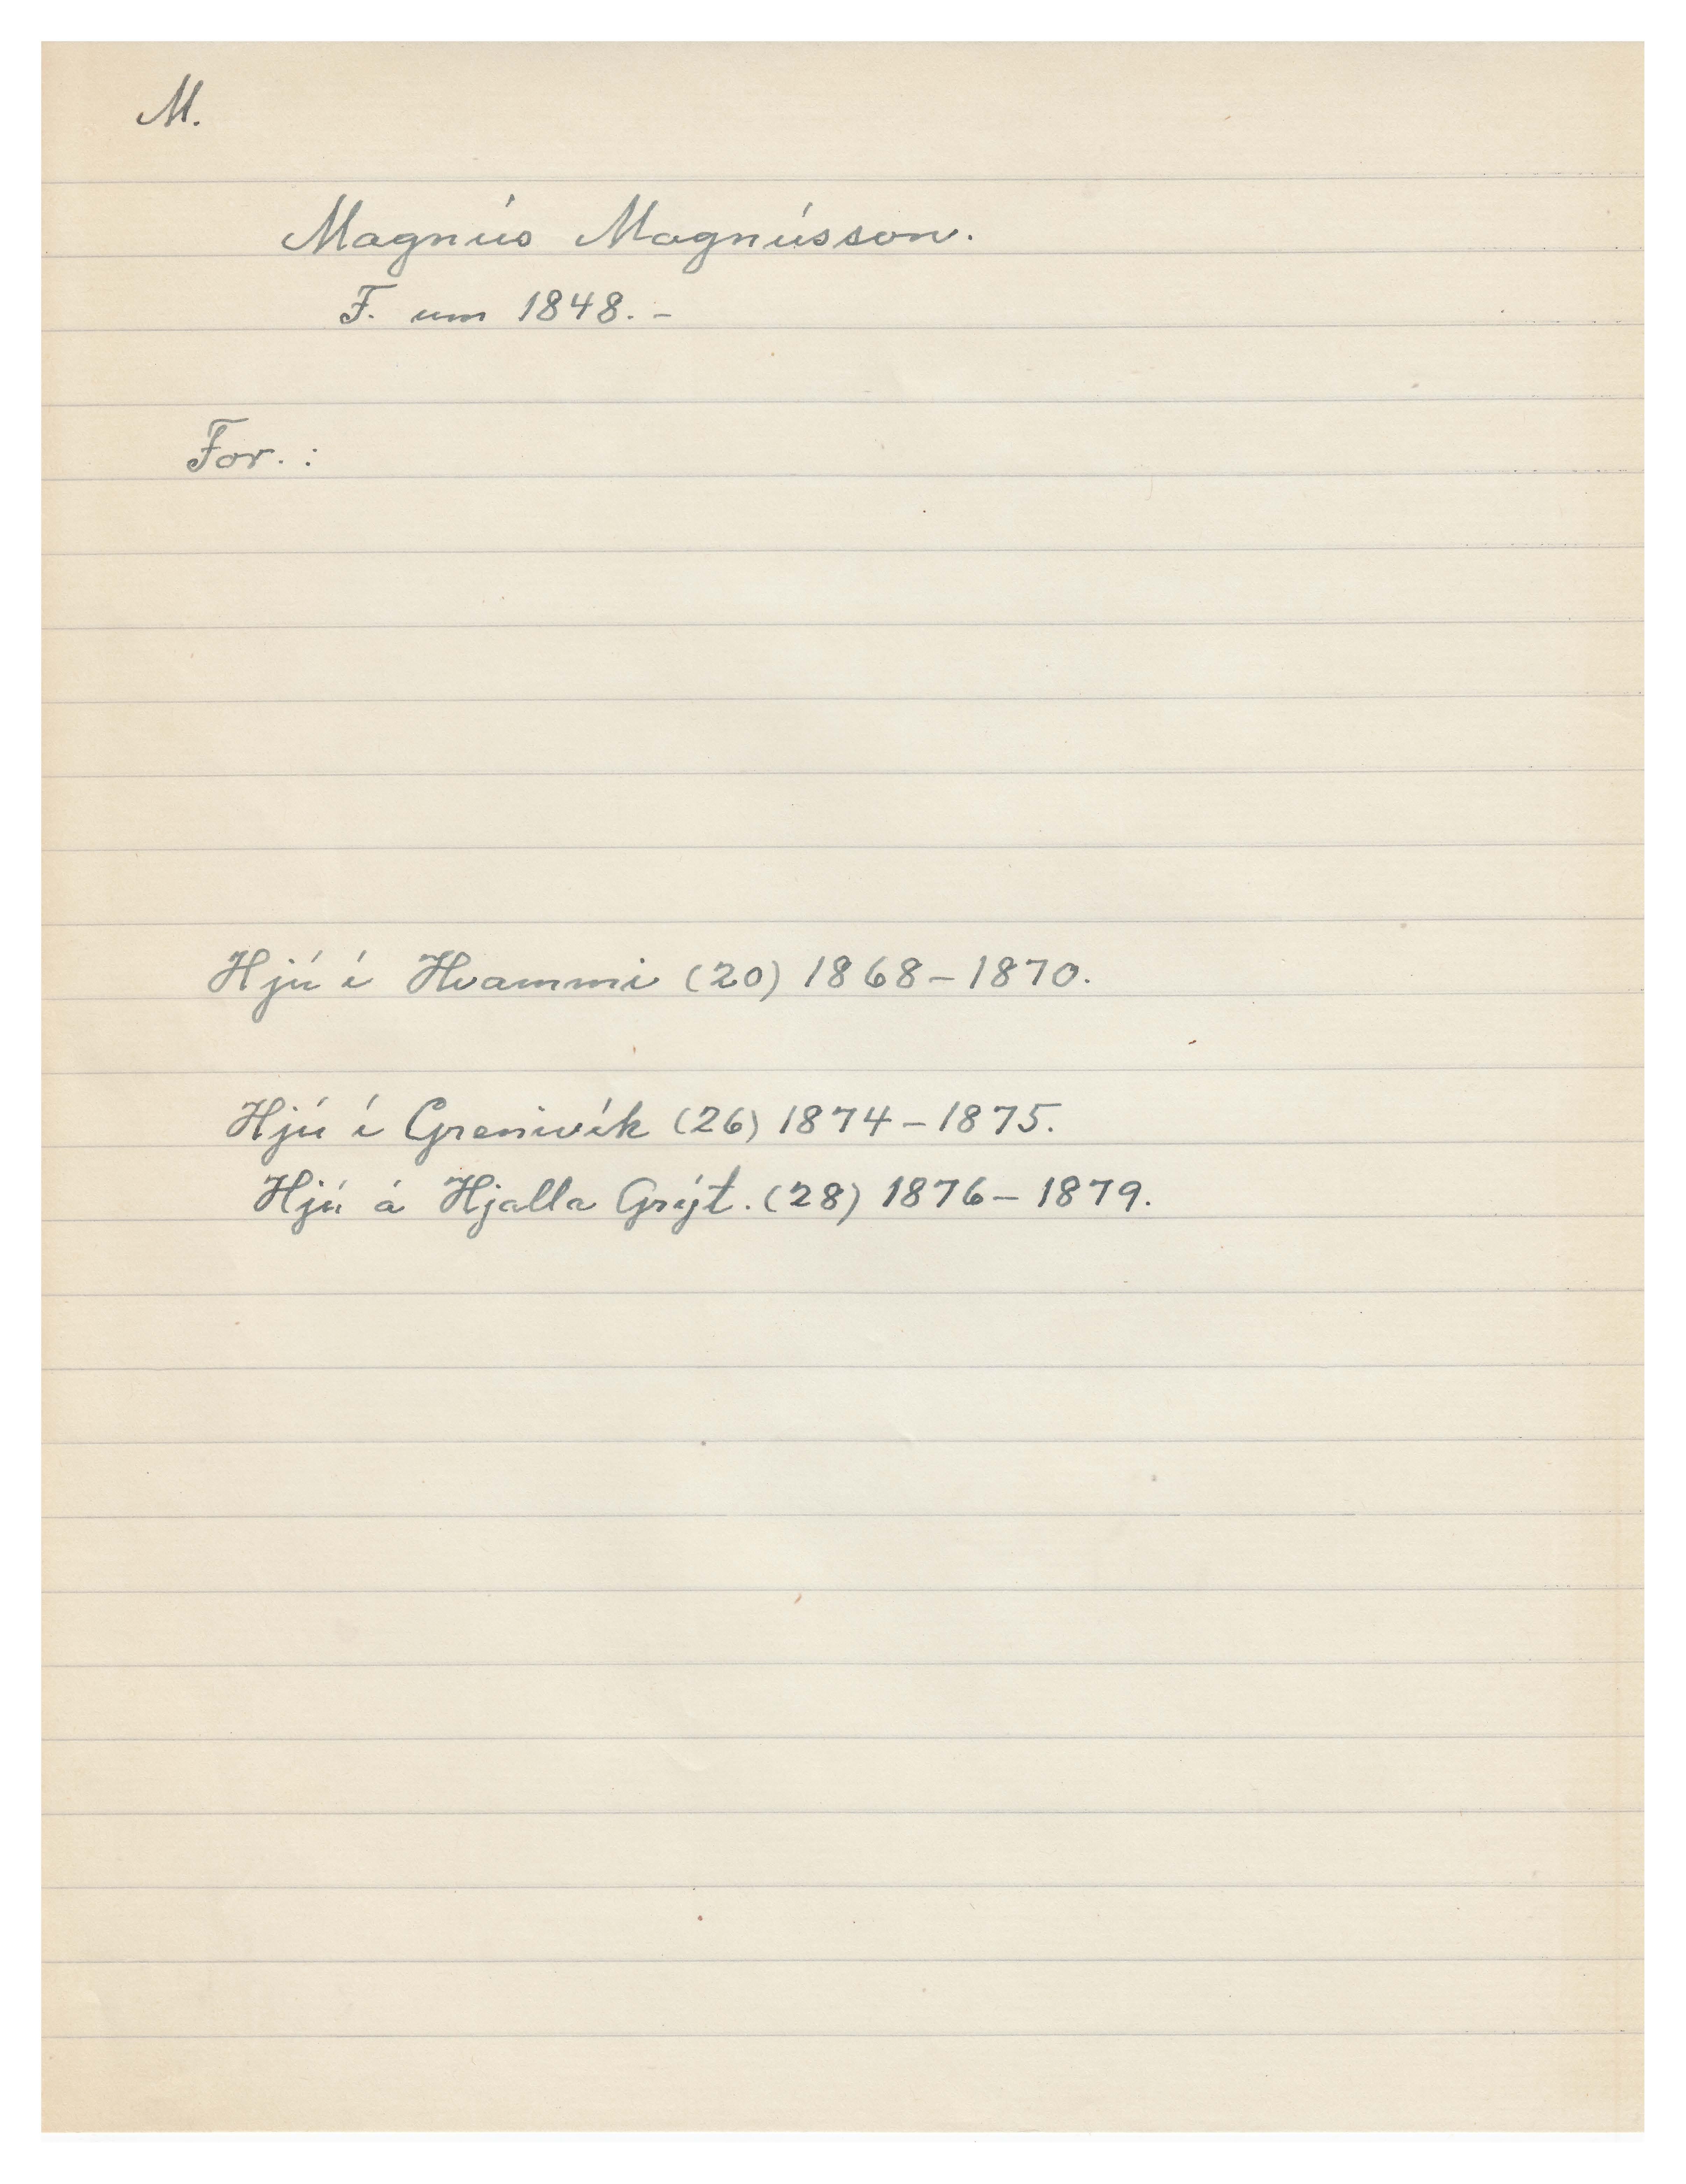 M.
Magnús Magnússon.
F. um 1848. -
For. :
Hjú í Hvammi (20) 1868-1870.
Hjú í Grenivík (26) 1874-1875.
Hjú á Hjalla Grýt. (28) 1876-1879.